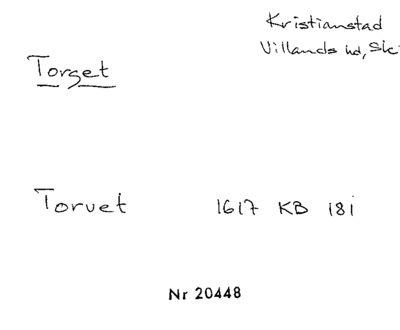 Kristianstad
Villands hd, Sk
Torget
Torvet 1617 KB 181
Nr 20448